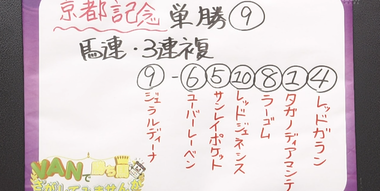 京都記念 単勝⑨
馬連・3連複
⑨-⑥⑤⑩⑧①④
ジェラルディーナ
ユーバーレーベン
サンレイポケット
レッドジェネシス
ラーゴム
タガノディアマンテ
レッドガラン
VANで